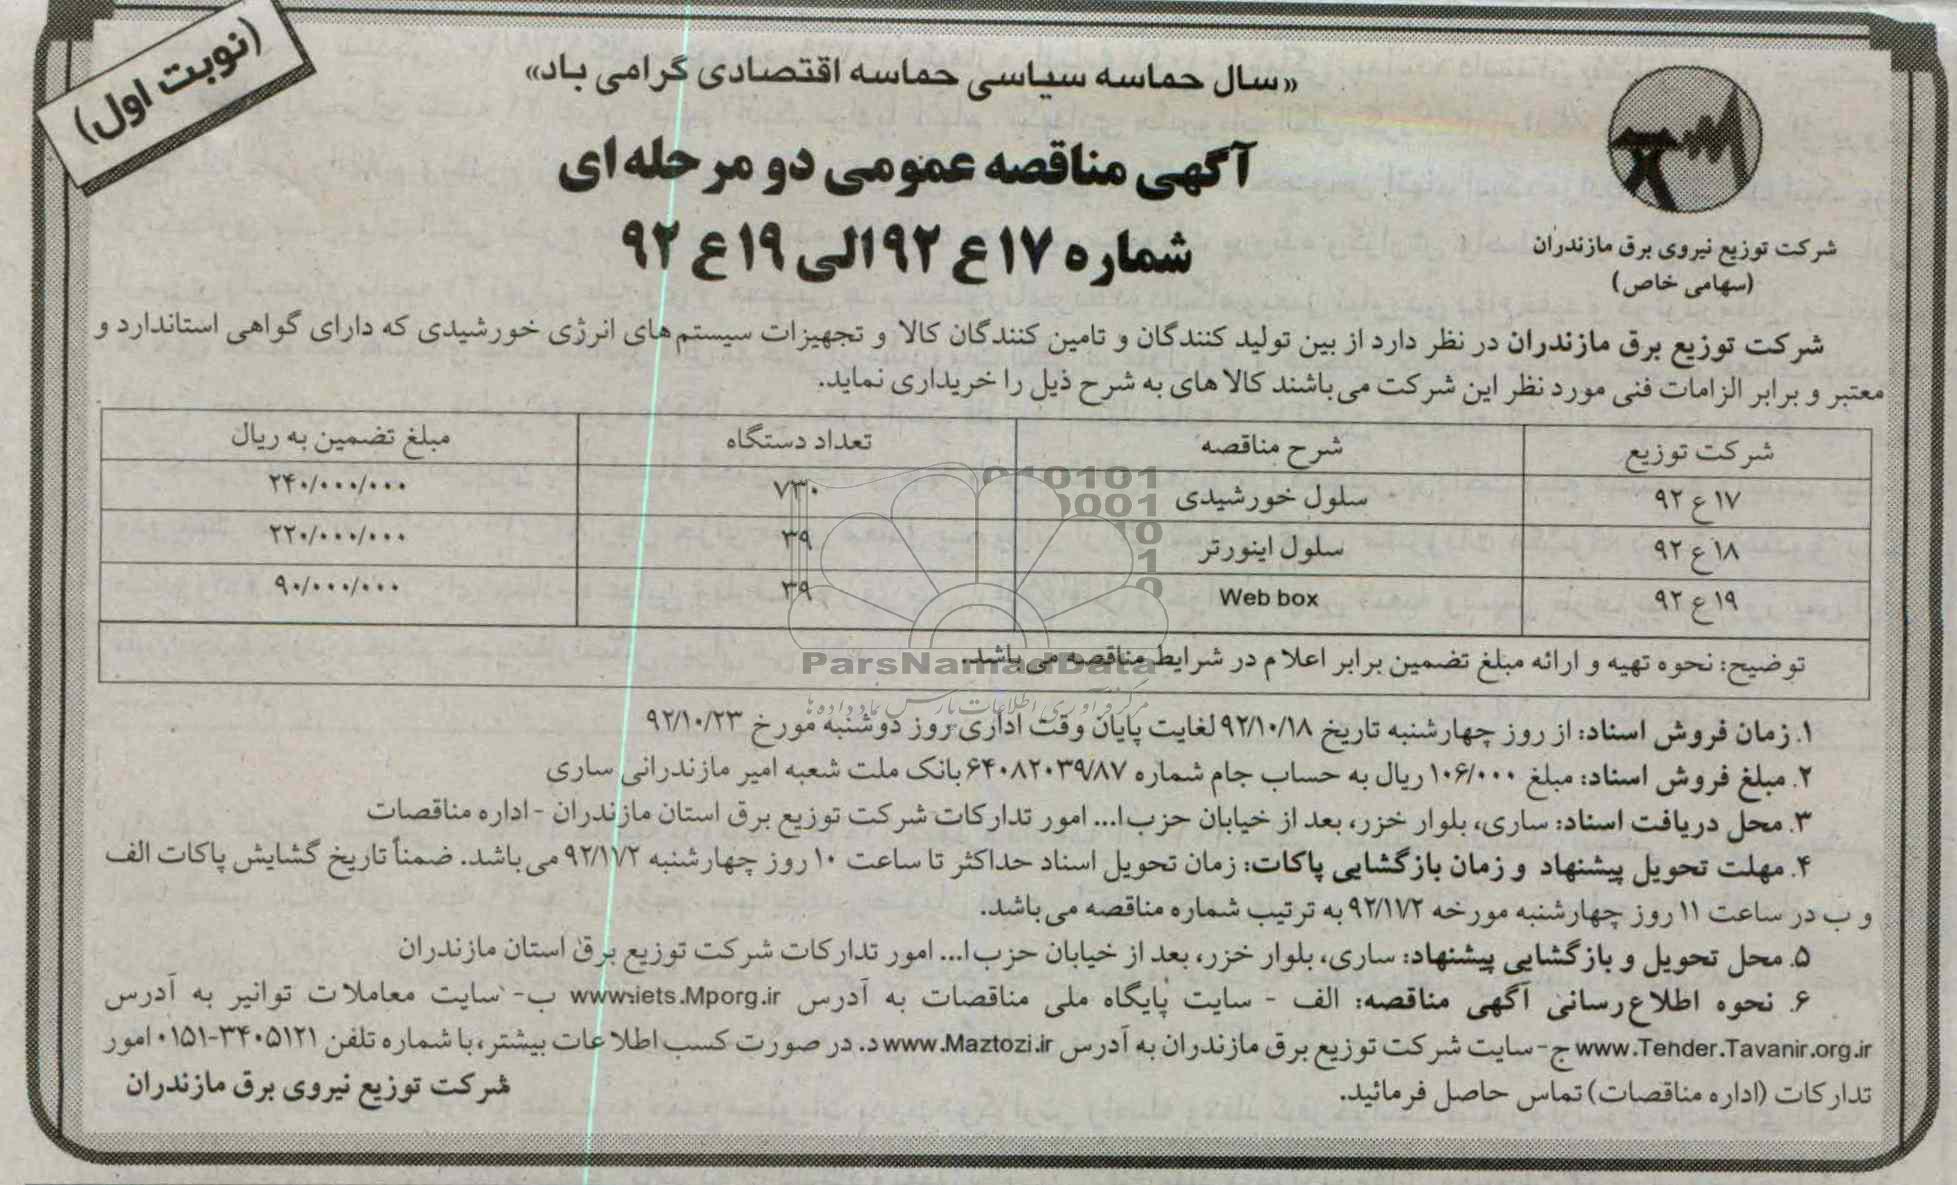 (نوبت اول)
«سال حماسه سیاسی حماسه اقتصادی گرامی باد»
آگهی مناقصه عمومی دو مرحله ای
شماره ۱۷ ع ۹۲ الی ۱۹ ع ۹۲
شرکت توزیع نیروی برق مازندران
(سهامی خاص)
شرکت توزیع برق مازندران در نظر دارد از بین تولید کنندگان و تامین کنندگان کالا و تجهیزات سیستم های انرژی خورشیدی که دارای گواهی استاندارد و
معتبر و برابر الزامات فنی مورد نظر این شرکت می باشند کالا های به شرح ذیل را خریداری نماید.
شرکت توزیع شرح مناقصه تعداد دستگاه مبلغ تضمین به ریال
۱۷ ع ۹۲ سلول خورشیدی ۷۳۰ ۲۴۰/۰۰۰/۰۰۰
۱۸ ع ۹۲ سلول اینورتر ۳۹ ۲۲۰/۰۰۰/۰۰۰
۱۹ ع ۹۲ Web box ۳۹ ۹۰/۰۰۰/۰۰۰
توضیح: نحوه تهیه و ارائه مبلغ تضمین برابر اعلام در شرایط مناقصه می باشد.
ParsNamadData
مرکز فرآوری اطلاعات پارس نماد داده ها
۱. زمان فروش اسناد: از روز چهارشنبه تاریخ ۹۲/۱۰/۱۸ لغایت پایان وقت اداری روز دوشنبه مورخ ۹۲/۱۰/۲۳
۲. مبلغ فروش اسناد: مبلغ ۱۰۶/۰۰۰ ریال به حساب جام شماره ۶۴۰۸۲۰۳۹/۸۷ بانک ملت شعبه امیر مازندرانی ساری
۳. محل دریافت اسناد: ساری، بلوار خزر، بعد از خیابان حزب ا... امور تدارکات شرکت توزیع برق استان مازندران - اداره مناقصات
۴. مهلت تحویل پیشنهاد و زمان بازگشایی پاکات: زمان تحویل اسناد حداکثر تا ساعت ۱۰ روز چهارشنبه ۹۲/۱۱/۲ می باشد. ضمناً تاریخ گشایش پاکات الف
و ب در ساعت ۱۱ روز چهارشنبه مورخه ۹۲/۱۱/۲ به ترتیب شماره مناقصه می باشد.
۵. محل تحویل و بازگشایی پیشنهاد: ساری، بلوار خزر، بعد از خیابان حزب ا... امور تدارکات شرکت توزیع برق استان مازندران
۶. نحوه اطلاع رسانی آگهی مناقصه: الف - سایت پایگاه ملی مناقصات به آدرس www.iets.Mporg.ir ب- سایت معاملات توانیر به آدرس
www.Tender.Tavanir.org.ir ج- سایت شرکت توزیع برق مازندران به آدرس www.Maztozi.ir د. در صورت کسب اطلاعات بیشتر، با شماره تلفن ۳۴۰۵۱۲۱-۰۱۵۱ امور
تدارکات (اداره مناقصات) تماس حاصل فرمائید.
شرکت توزیع نیروی برق مازندران